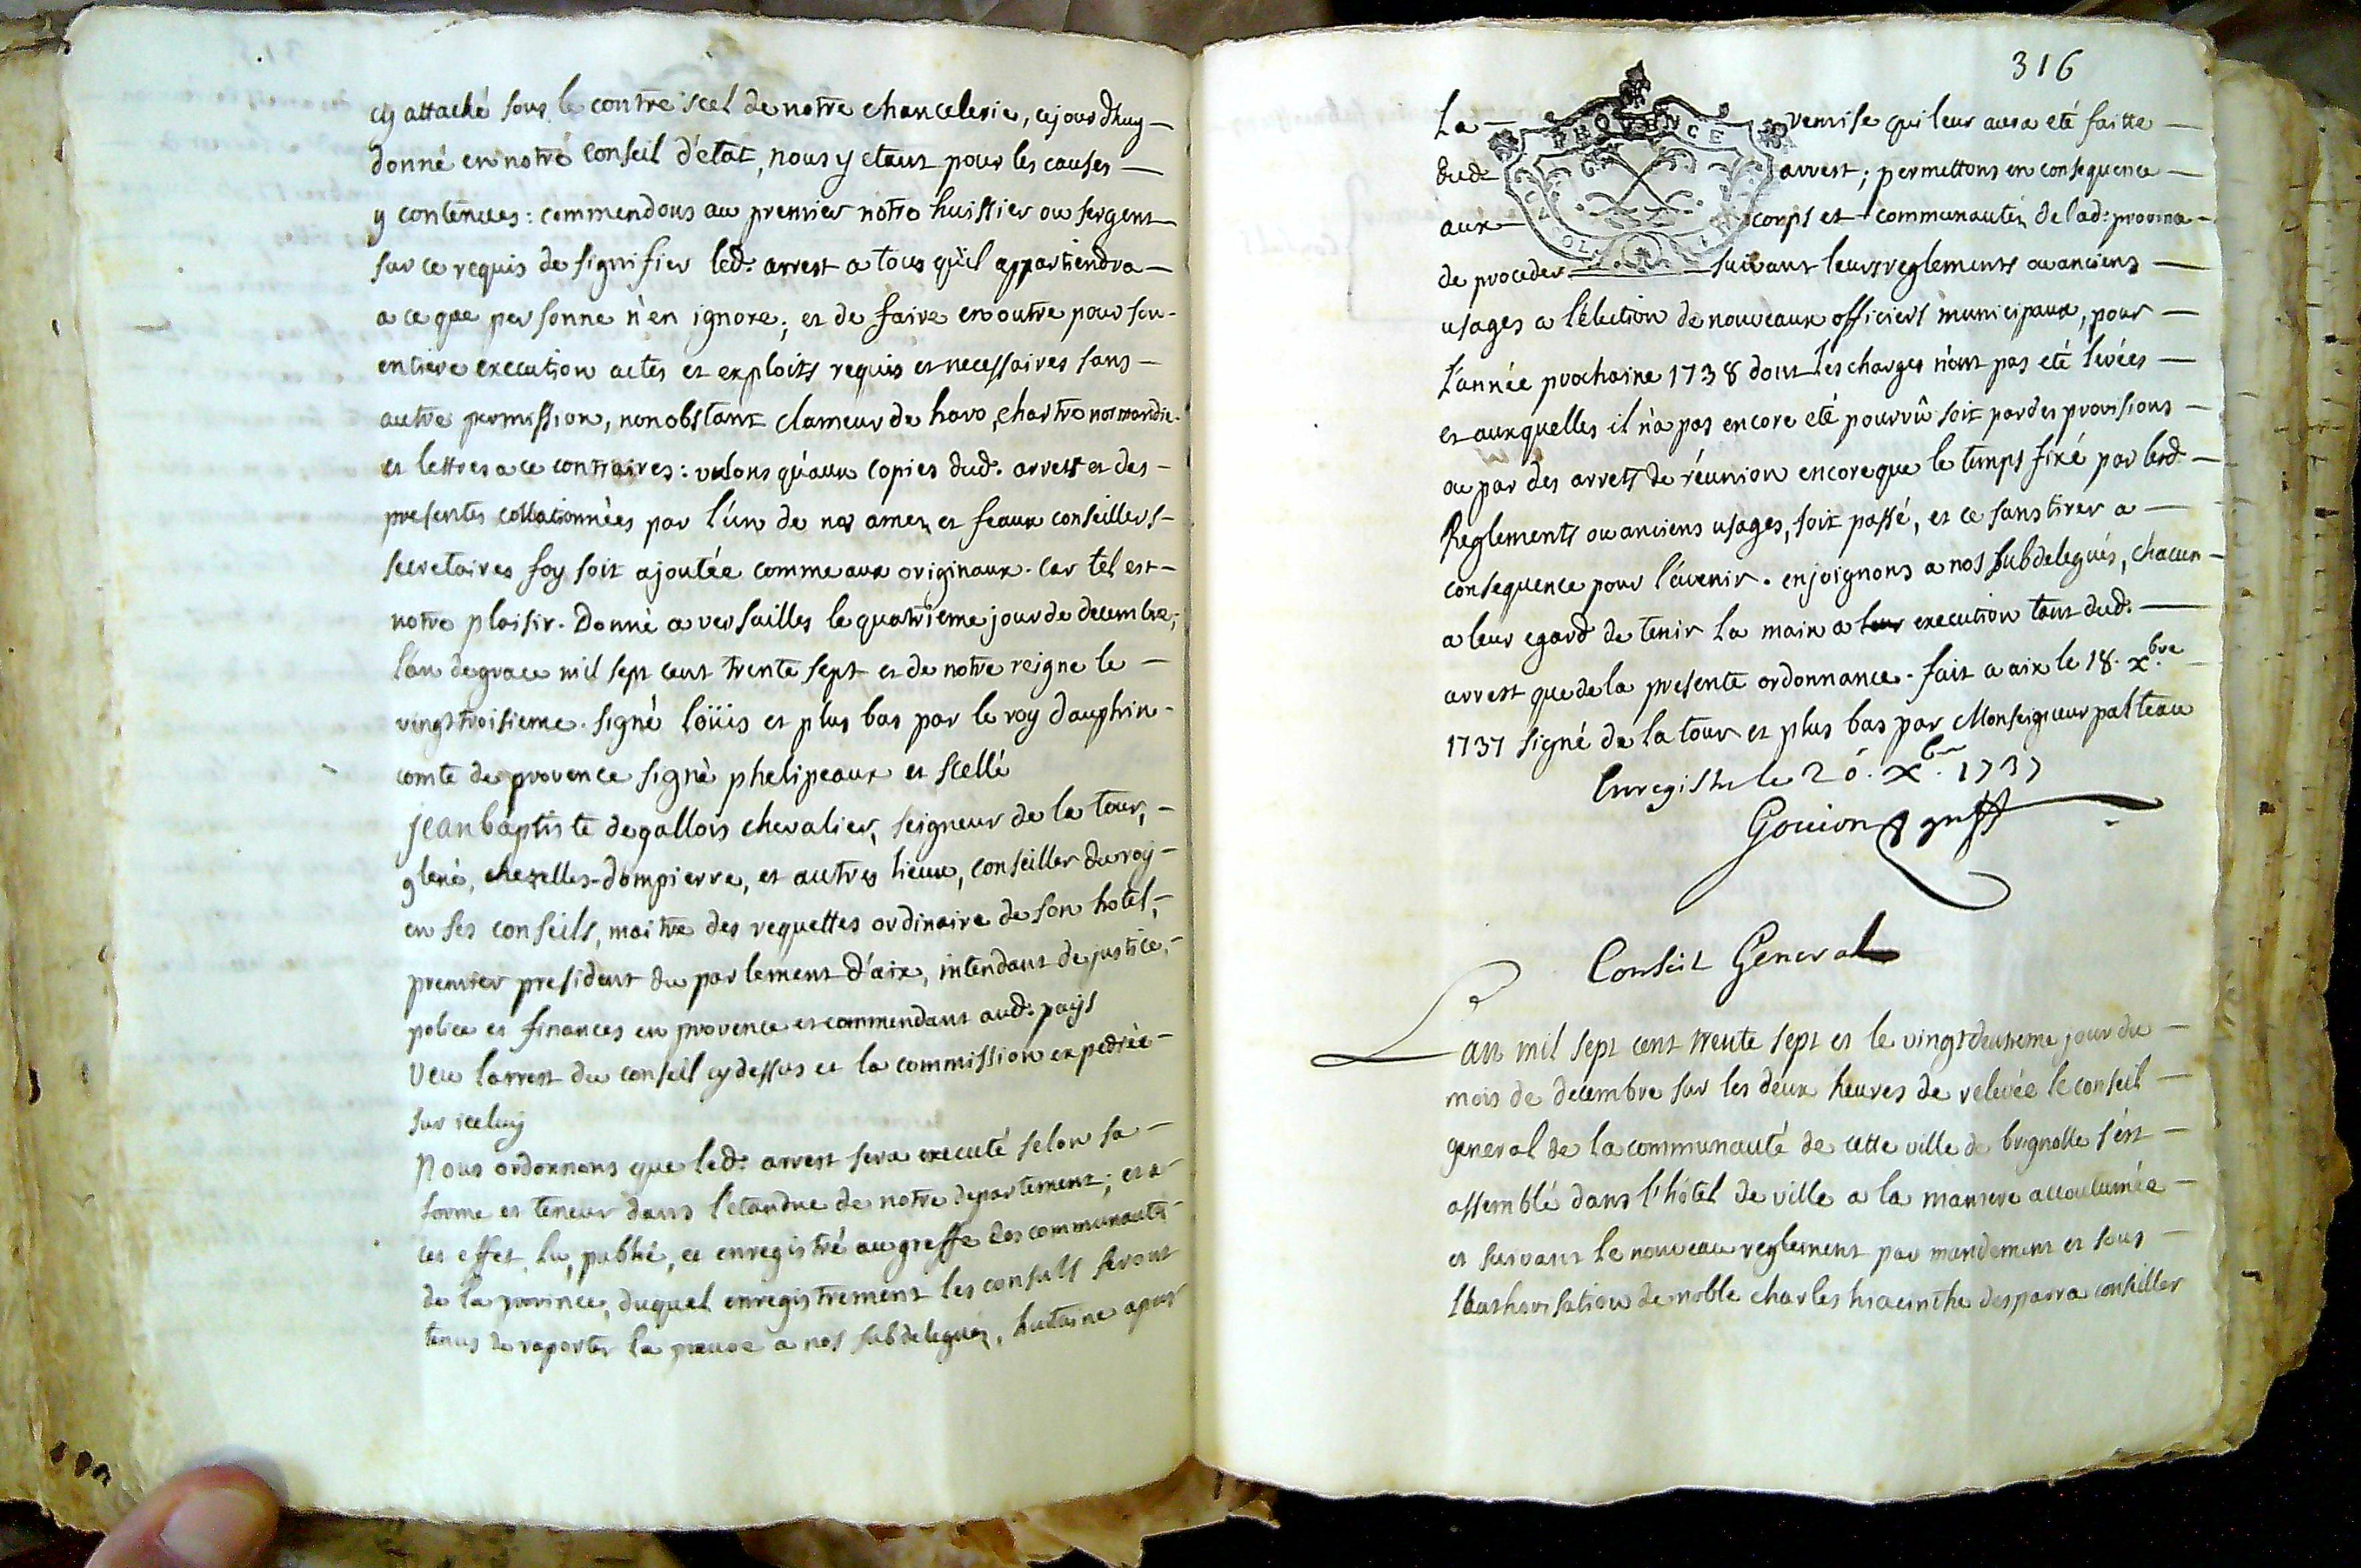 cy attaché sous le contre scel de notre chancelerie, cejourdhuy
donné en notre conseil d'etat, nous y etant pour les causes
y contenues: commendons au premier notre huissier ou sergent
sur ce requis de signifier led. arrest a tous qu'il appartiendra
a ce que personne n'en ignore; et de faire en outre pour son
entiere execution actes et exploits requis et necessaires sans
autre permission, nonobstant clameur de haro, chartre normande
et lettres a ce contraires: voulons qu'aux copies dud. arrest et des
presentes collationnées par l'un de nos amez et feaux conseillers
secretaires foy soit ajoutée comme aux originaux. Car tel est
notre plaisir. Donné a versailles le quatrieme jour de decembre;
l'an de grace mil sept cent trente sept et de notre reigne le
vingt troisieme. signé loüis et plus bas par le roy dauphin
comte de provence signé phelipeaux et scellé
jean baptiste de gallois chevalier, seigneur de la tour,
glené, chezelles-dompierre, et autres lieux, conseiller du roy
en ses conseils, maitre des requettes ordinaire de son hotel,
premier president du parlement d'aix, intendant de justice,
police et finances en provence et commendant aud. pays
Veu larrest du conseil cy dessus et la commission expediée
sur iceluy
Nous ordonnons que led. arrest sera executé selon sa
forme et teneur dans l'etandue de notre departement; et a
cet effet lu, publié, et enregistré au greffe des communautés
de la province, duquel enregistrement les consuls seront
tenus de raporter la preuve a nos subdeleguez, huitaine apres
316
PROVENCE
La remise qui leur aura eté faitte
dud. arrest; permettons en consequence
aux corps et communautéz de lad. province
de proceder suivant leurs reglements ou anciens
usages a l'élection de nouveaux officiers municipaux, pour
L'année prochaine 1738 dont les charges n'ont pas eté levées
et auxquelles il n'a pas encore eté pourvû soit par des provisions
ou par des arrets de réunion encore que le temps fixé par lesd.
Reglements ou anciens usages, soit passé, et ce sans tirer a
consequence pour l'avenir. enjoignons a nos subdelegués, chacun
a leur egard de tenir la main a leur execution tant dud.
arrest que de la presente ordonnance. fait a aix le 18. xbre
1737 signé de la tour et plus bas par Monseigneur patteau
Enregistre le 20. xbre. 1737
Gouion greff
Conseil General
L'an mil sept cent trente sept et le vingt deuxieme jour du
mois de decembre sur les deux heures de relevée le conseil
general de la communauté de cette ville de brignolle s'est
assemblé dans l'hôtel de ville a la maniere accoutumée
et suivant le nouveau reglement par mandement et sous
lauthorisation de noble charles hiacinthe desparra conseiller